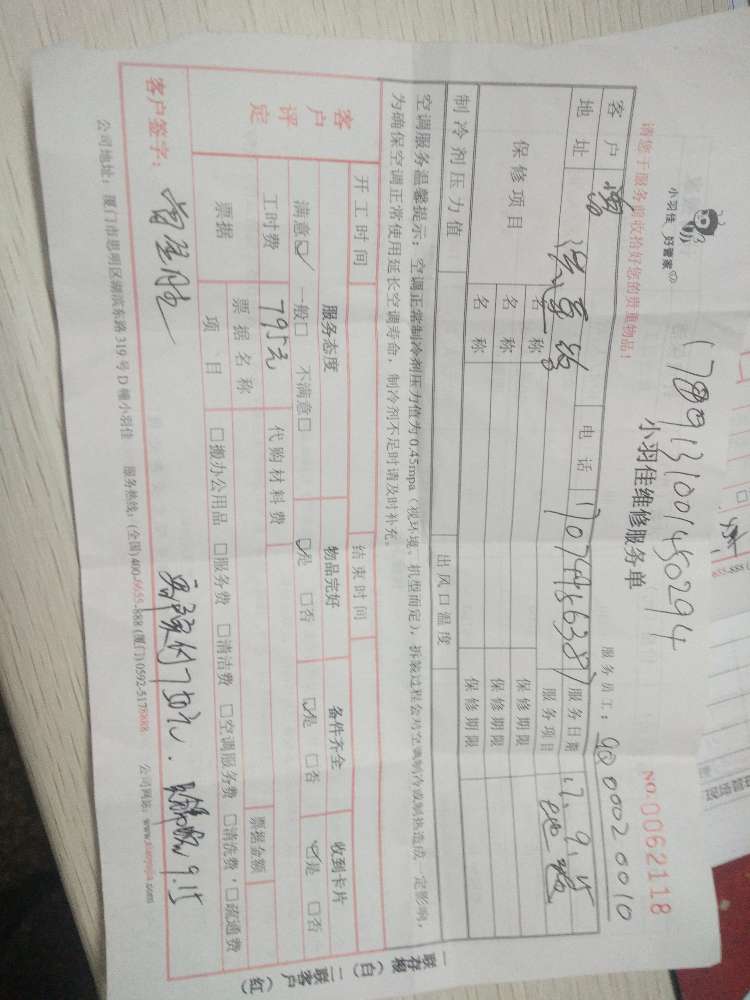 小羽佳 好管家
1789131001450294
小羽佳维修服务单
NO. 0062118
请您于服务前收拾好您的贵重物品!
服务员工:
00020010
客户
电话
服务日期
17.9.15
地址
服务项目
保修项目
名称
保修期限
名称
保修期限
名称
保修期限
制冷剂压力值
出风口温度
空调服务温馨提示:空调正常制冷剂压力值为0.45mpa(视环境、机型而定),拆装过程会对空调制冷或制热造成一定影响,
为确保空调正常使用延长空调寿命,制冷剂不足时请及时补充。
开工时间
结束时间
客户评定
服务态度
物品完好
备件齐全
收到卡片
满意☑ 一般□ 不满意□
☑是 □否
☑是 □否
☑是 □否
工时费
795元
代购材料费
票据
票据名称
票据金额
项目
□搬办公用品 □服务费 □清洁费 □空调服务费 □清洗费 □疏通费
客户签字:
9.15
公司地址:厦门市思明区湖滨东路319号D幢小羽佳 服务热线:(全国)400-6655-888 (厦门)0592-5178888 公司网站:www.xiaoyujia.com
一联存根(白) 二联客户(红)